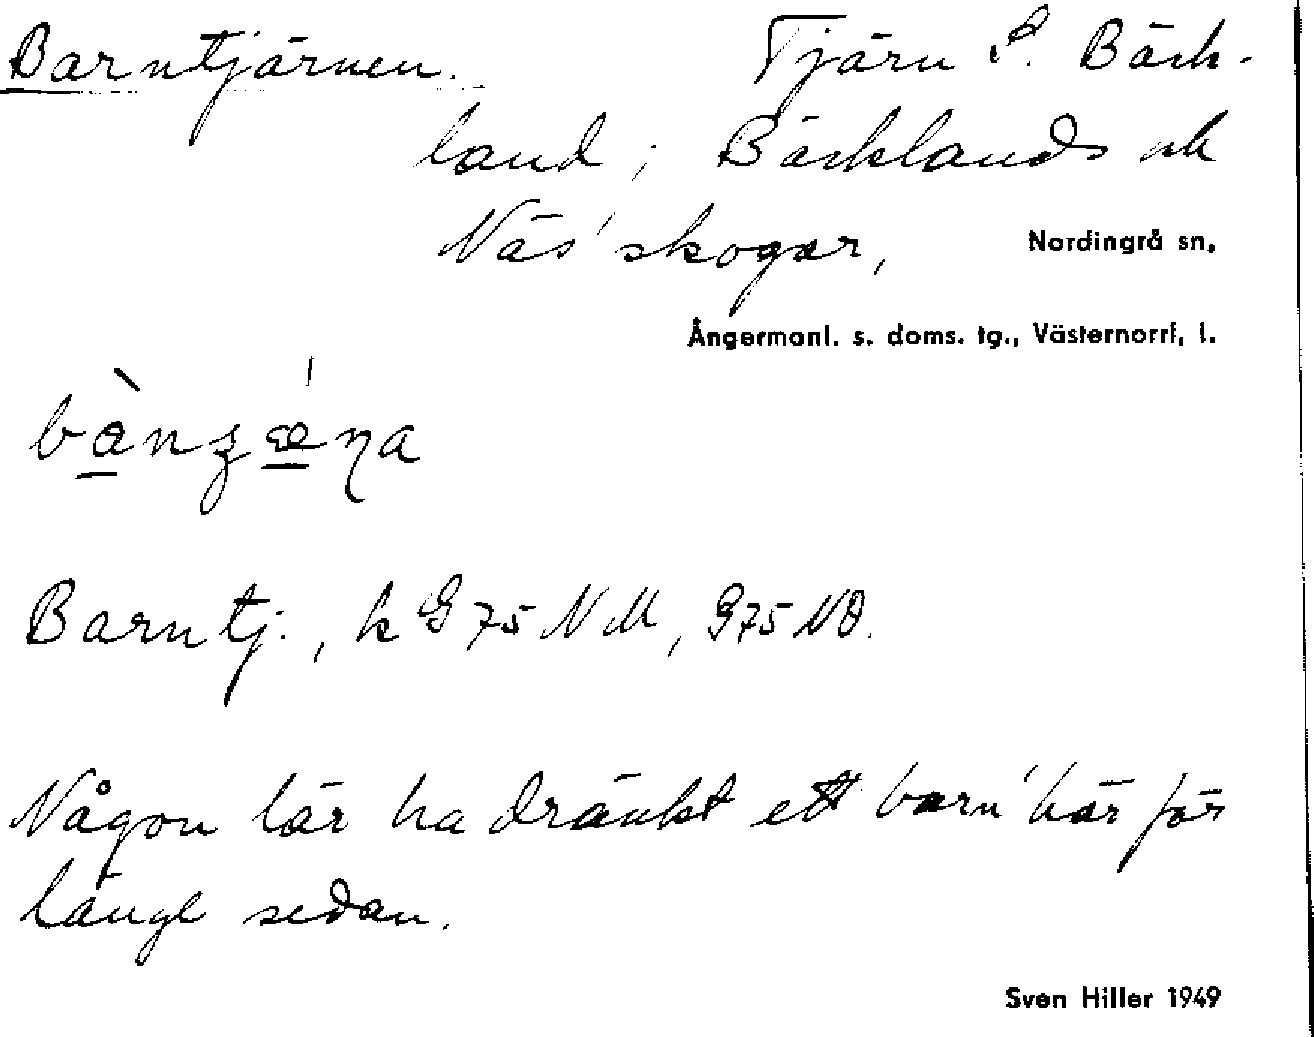 Barntjärnen. Tjärn S. Bäck-
land; Bäcklands och
Näs' skogar, Nordingrå sn,
Ångermanl. s. doms. tg., Västernorrl. l.
Barntj., k G 75 NM, G75 NO.
Någon lär ha dränkt ett barn här för
länge sedan.
Sven Hiller 1949